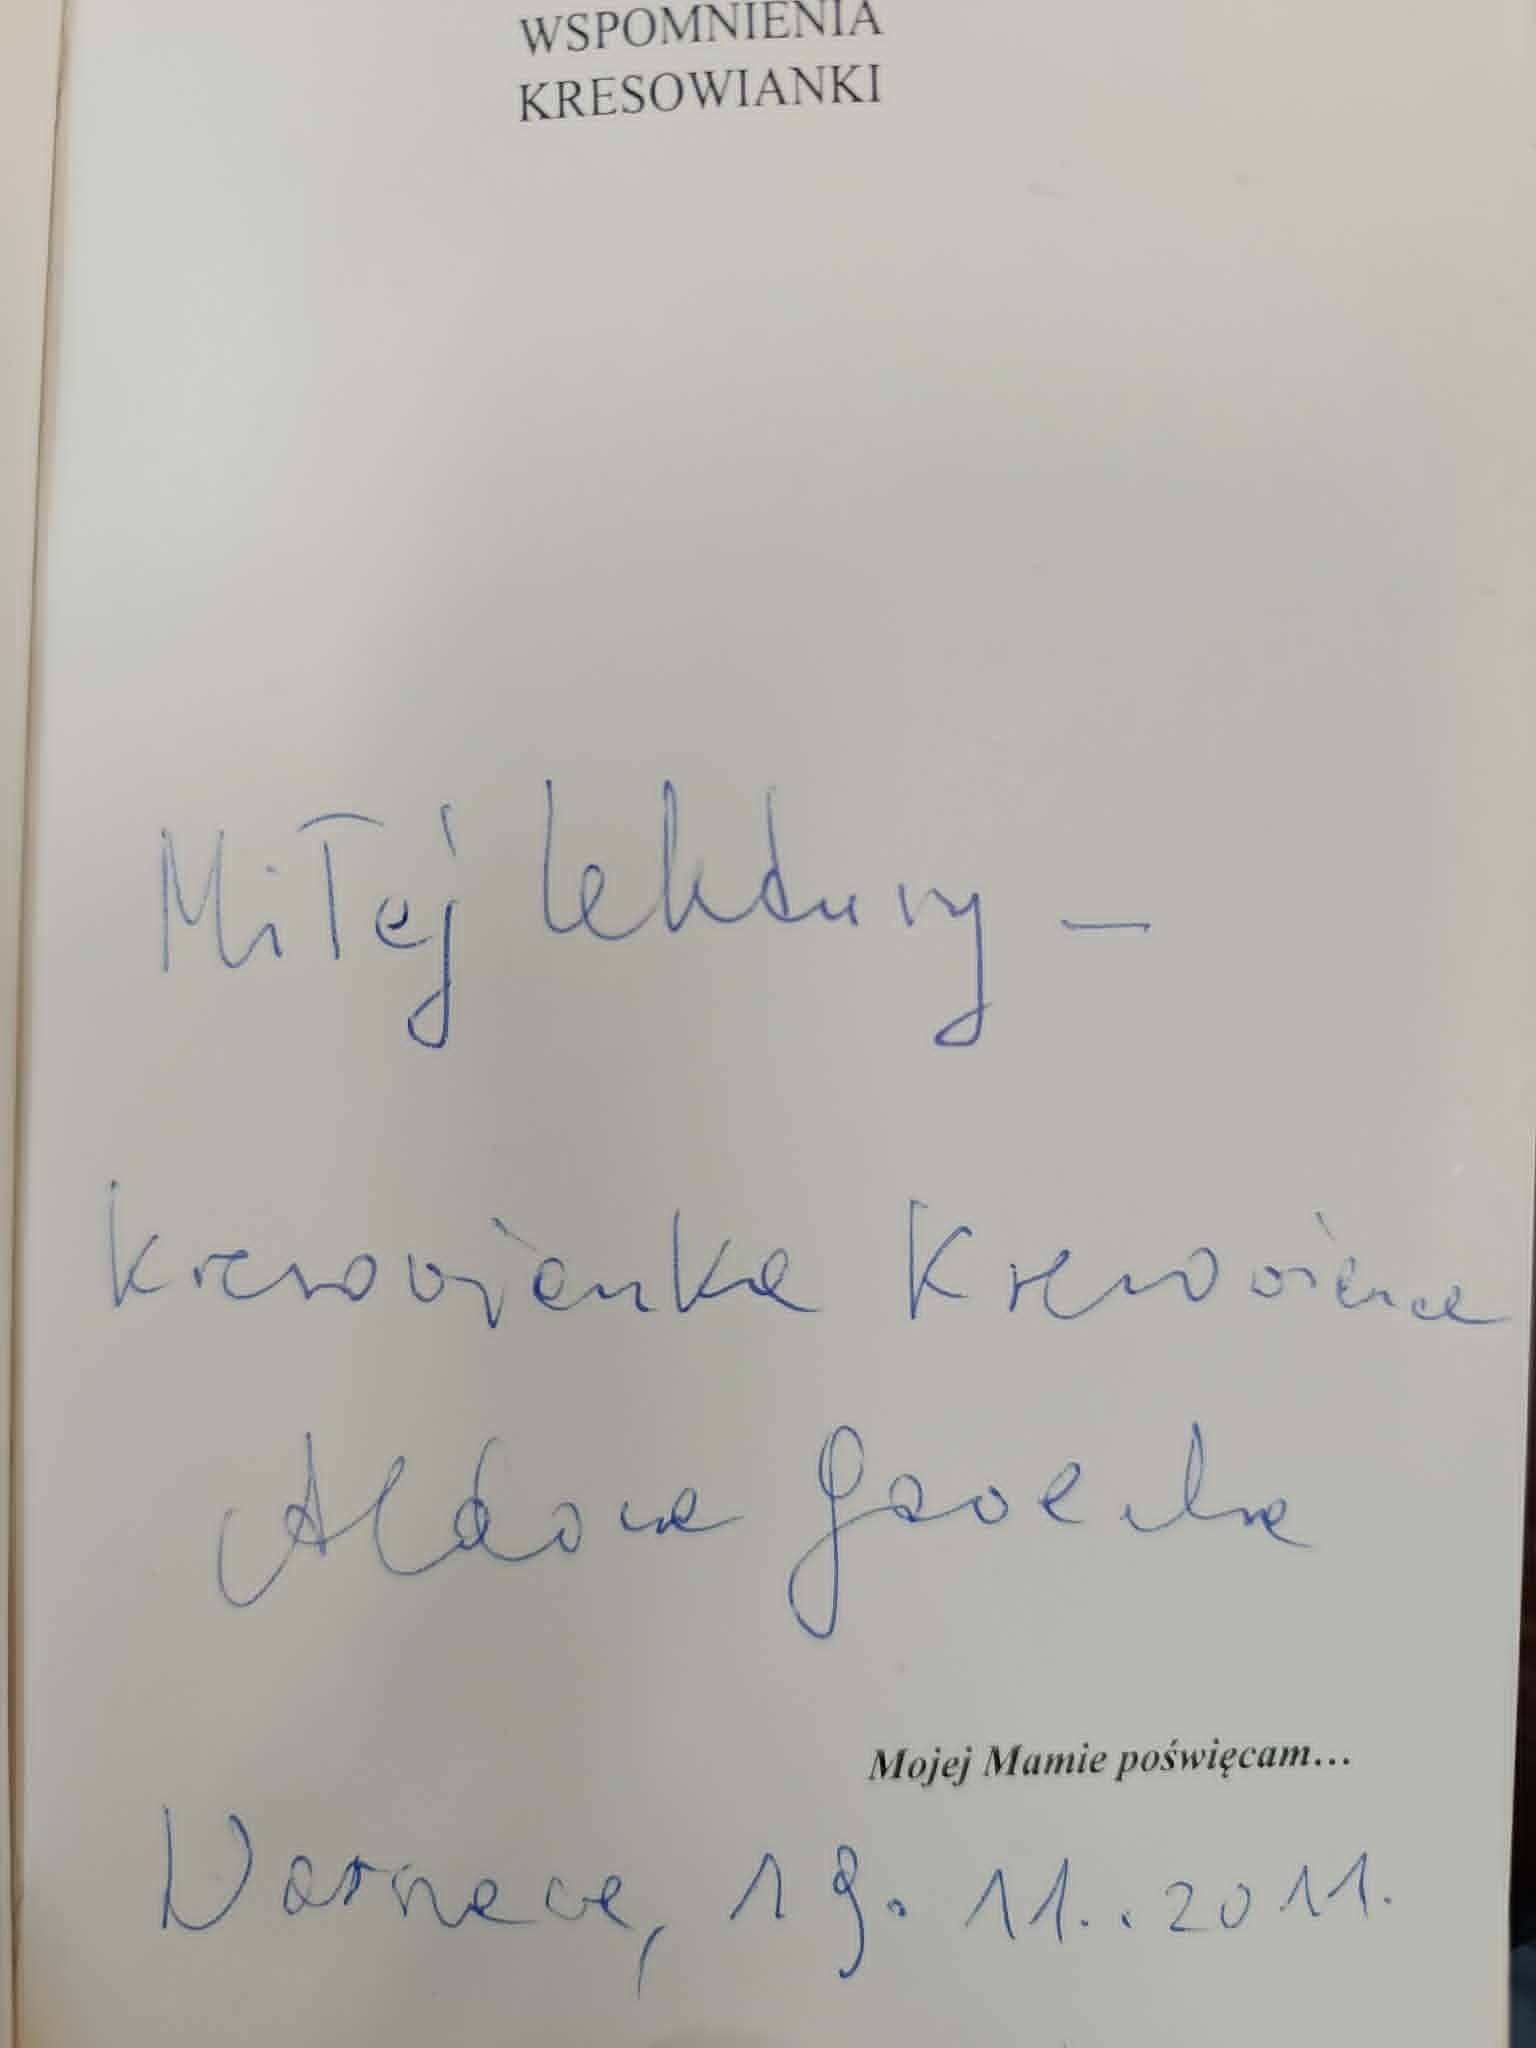 WSPOMNIENIA
KRESOWIANKI
Miłej lektury –
Kresowianka
Aldona
Mojej Mamie poświęcam...
Warszawa, 19. 11. 2011.